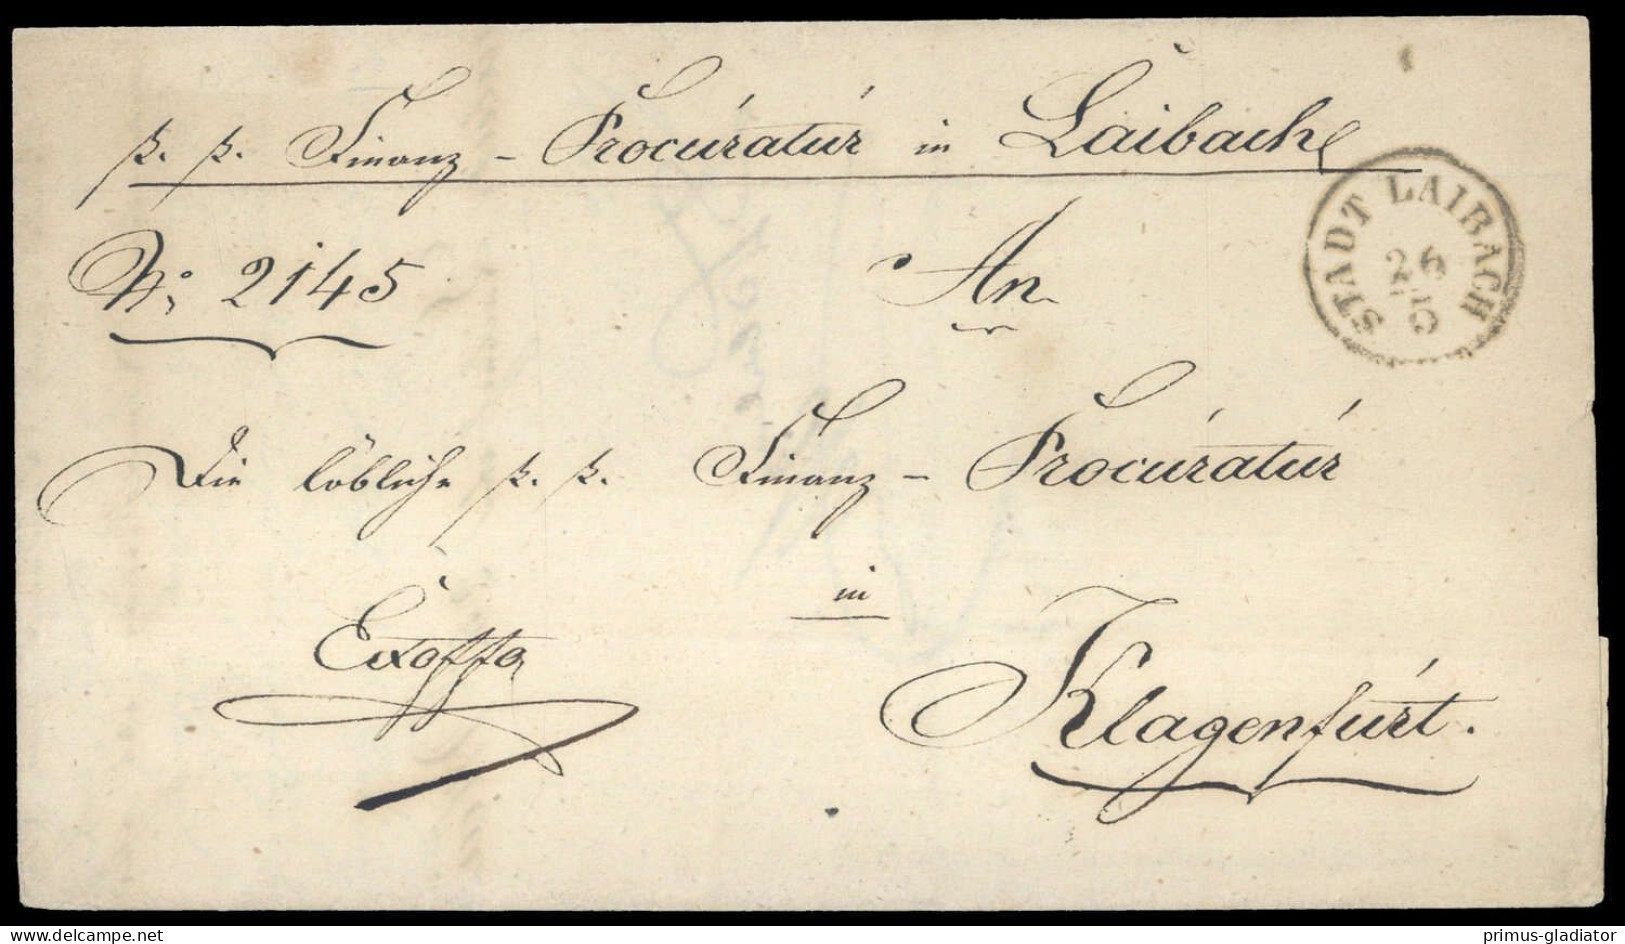 k. k. Finanz-Procuratur in Laibach
STADT LAIBACH
26
No. 2145
An
Die löbliche k. k. Finanz-Procuratur
in
Exoffo
Klagenfurt.
www.delcampe.net
primus-gladiator